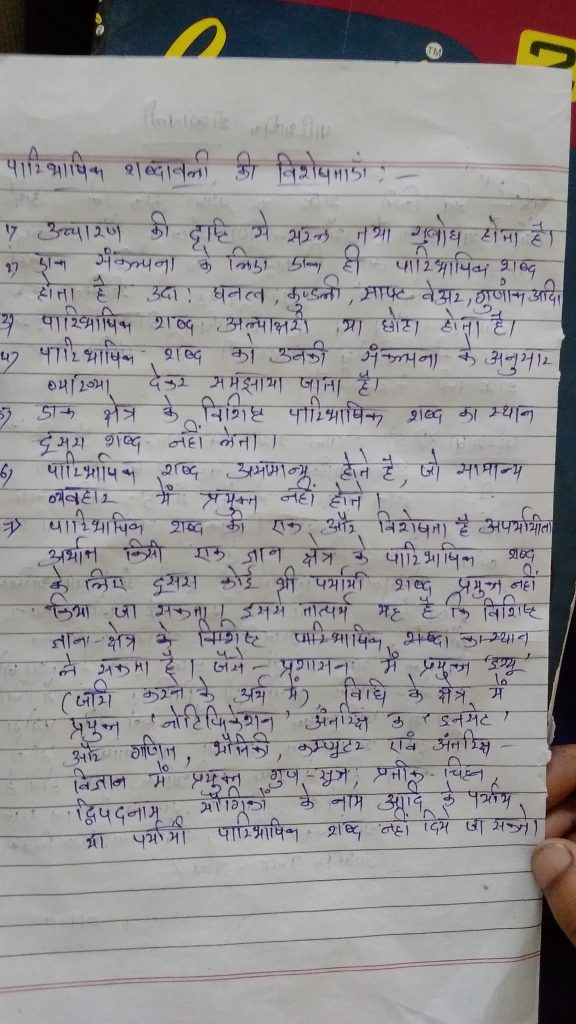 TM
पारिभाषिक शब्दावली की विशेषताएँ :-
1) उच्चारण की दृष्टि से सरल तथा सुबोध होता है।
2) एक संकल्पना के लिए एक ही पारिभाषिक शब्द
होता है। उदा: घनत्व, कुंडली, साफ्ट वेअर, गुणांक आदि
3) पारिभाषिक शब्द अल्पाक्षरी या छोटा होता है।
4) पारिभाषिक शब्द को उनकी संकल्पना के अनुसार
व्याख्या देकर समझाया जाता है।
5) एक क्षेत्र के विशिष्ट पारिभाषिक शब्द का स्थान
दुसरा शब्द नहीं लेता।
6) पारिभाषिक शब्द असमान्य होते है, जो सामान्य
व्यवहार में प्रयुक्त नहीं होते।
7) पारिभाषिक शब्द की एक और विशेषता है अपर्यायीता
अर्थात किसी एक ज्ञान क्षेत्र के पारिभाषिक शब्द
के लिए दुसरा कोई भी पर्यायी शब्द प्रयुक्त नहीं
किया जा सकता। इससे तात्पर्य यह है कि विशिष्ट
ज्ञान-क्षेत्र के विशिष्ट पारिभाषिक शब्द का स्थान
ले सकता है। जैसे - प्रशासन में प्रयुक्त 'इश्यू'
(जारी करने के अर्थ में) विधि के क्षेत्र में
प्रयुक्त 'नोटिफिकेशन' अंतरिक्ष के 'इनसेट'
और गणित, भौतिकी, कम्प्युटर एवं अंतरिक्ष-
विज्ञान में प्रयुक्त सूत्र, प्रतीक चिह्न,
द्विपदनाम, यौगिकों के नाम आदि के पर्याय
या पर्यायी पारिभाषिक शब्द नहीं दिये जा सकते।